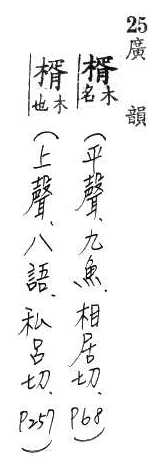 25廣韻
楈木名(平聲、九魚、相居切、P68)
楈木也(上聲、八語、私呂切、P257)